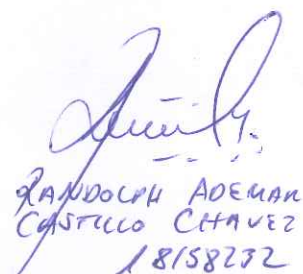 RANDOLPH ADEMAR
CASTILLO CHAVEZ
18158232